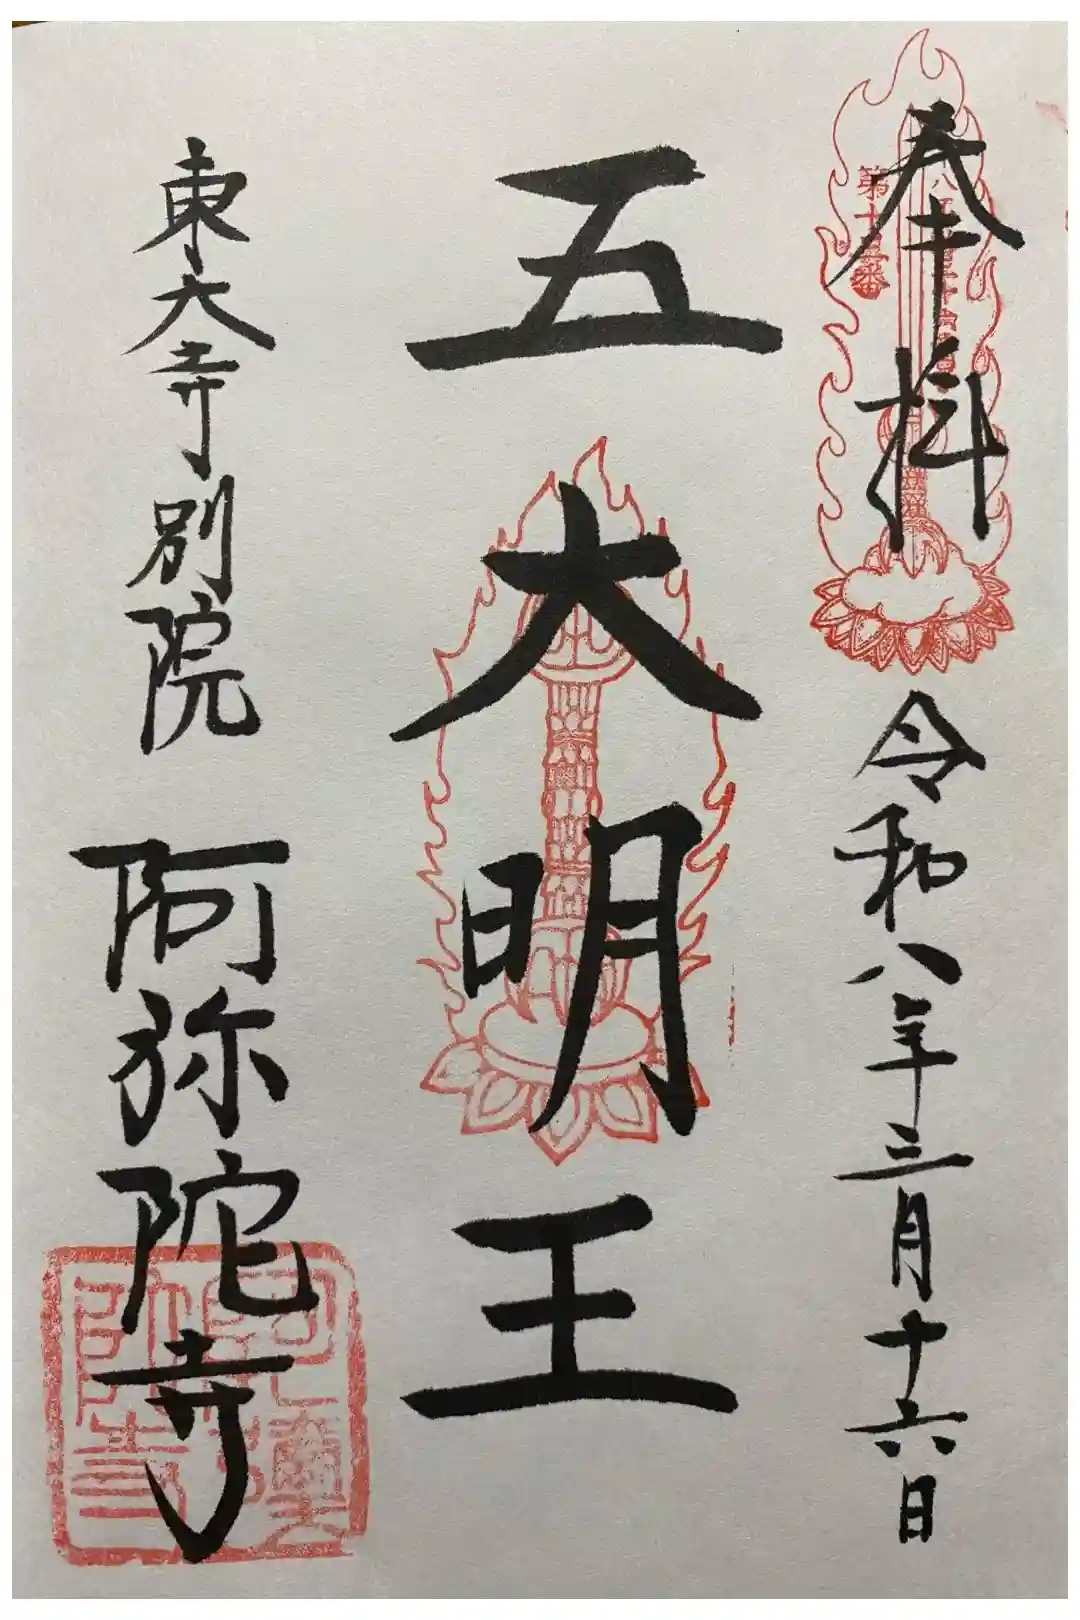 奉拝 令和八年三月十六日
第十五番
五大明王
東大寺別院 阿弥陀寺